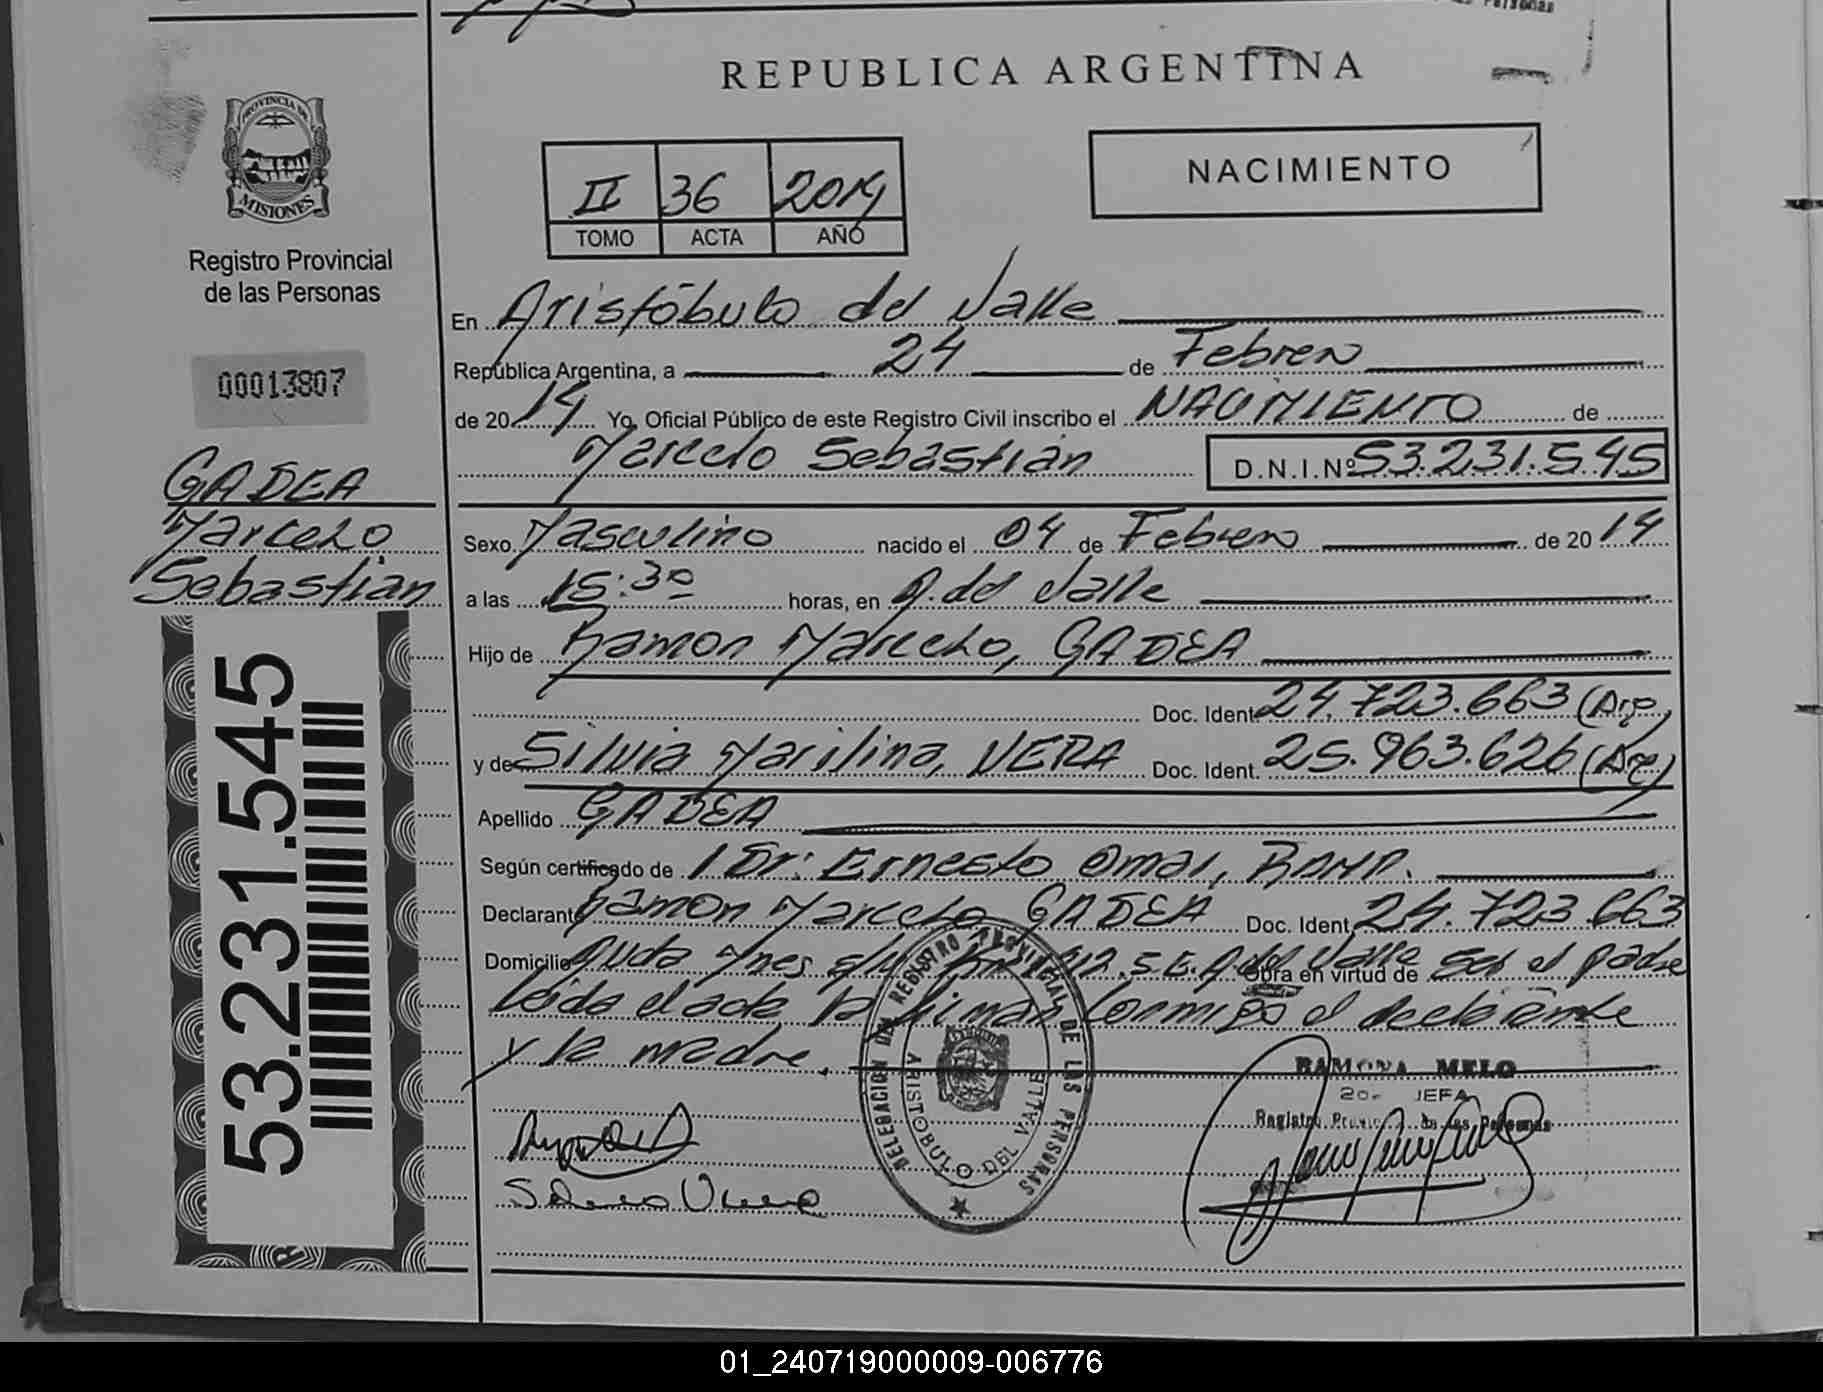 REPUBLICA ARGENTINA
PROVINCIA DE
MISIONES
Registro Provincial
de las Personas
00013807
GADEA
Marcelo
Sebastián
53.231.545
II 36 2014
TOMO ACTA AÑO
NACIMIENTO
En Aristóbulo del Valle
República Argentina, a 24 de Febrero
de 2014 Yo, Oficial Público de este Registro Civil inscribo el NACIMIENTO de
Marcelo Sebastián D.N.I.Nº 53.231.545
Sexo Masculino nacido el 04 de Febrero de 2014
a las 15:30 horas, en A. del Valle
Hijo de Ramon Marcelo, GADEA
Doc. Ident 24.723.663 (Arg)
y de Silvia Marilina, VERA Doc. Ident. 25.963.626 (Arg)
Apellido GADEA
Según certificado de Dr: Ernesto Omar,
Declarante Ramon Marcelo GADEA Doc. Ident 24.723.663
Domicilio del Valle Obra en virtud de ser el padre
Leída el acta la firman conmigo el declarante
y la madre.
DELEGACION DEL REGISTRO PROVINCIAL DE LAS PERSONAS
ARISTOBULO DEL VALLE
RAMONA MELO
JEFA
Registro Provincial de las Personas
01_240719000009-006776